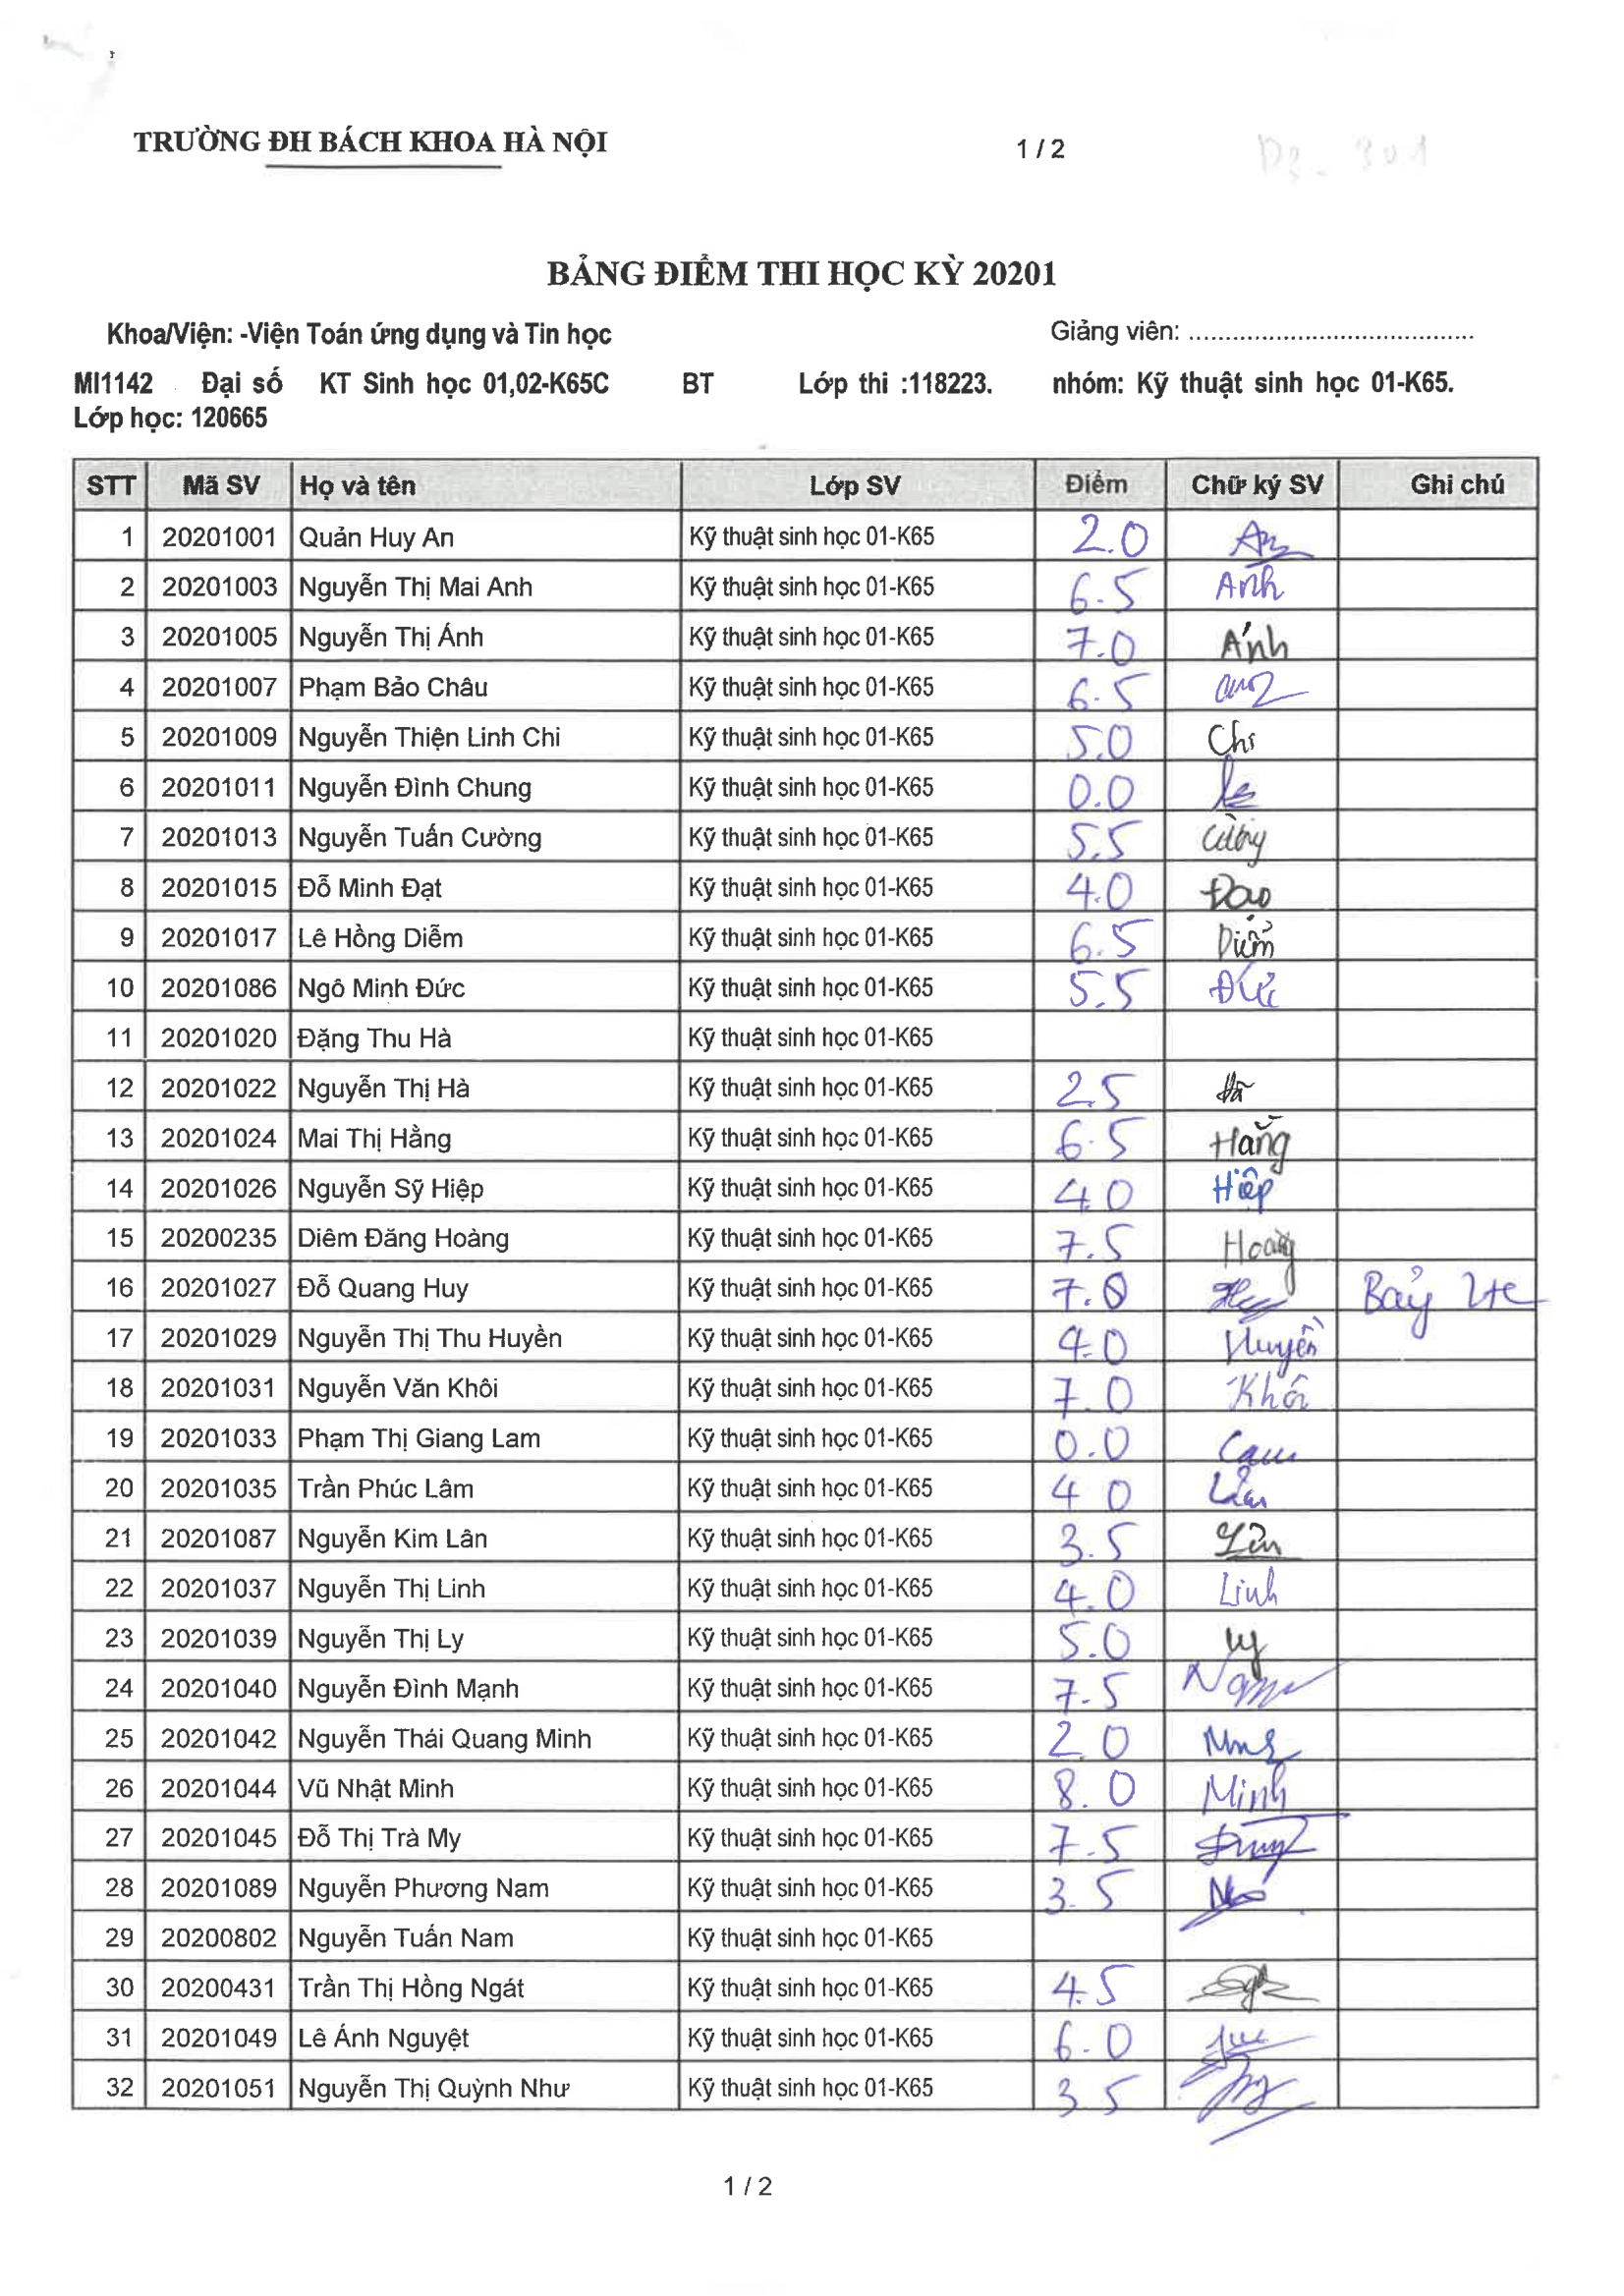 TRƯỜNG ĐH BÁCH KHOA HÀ NỘI 1 / 2 D3-301
BẢNG ĐIỂM THI HỌC KỲ 20201
Khoa/Viện: -Viện Toán ứng dụng và Tin học Giảng viên: ........................................
MI1142 Đại số KT Sinh học 01,02-K65C BT Lớp thi :118223. nhóm: Kỹ thuật sinh học 01-K65.
Lớp học: 120665
STT Mã SV Họ và tên Lớp SV Điểm Chữ ký SV Ghi chú
1 20201001 Quản Huy An Kỹ thuật sinh học 01-K65 2.0 An
2 20201003 Nguyễn Thị Mai Anh Kỹ thuật sinh học 01-K65 6.5 Anh
3 20201005 Nguyễn Thị Ánh Kỹ thuật sinh học 01-K65 7.0 Ánh
4 20201007 Phạm Bảo Châu Kỹ thuật sinh học 01-K65 6.5
5 20201009 Nguyễn Thiện Linh Chi Kỹ thuật sinh học 01-K65 5.0 Chi
6 20201011 Nguyễn Đình Chung Kỹ thuật sinh học 01-K65 0.0
7 20201013 Nguyễn Tuấn Cường Kỹ thuật sinh học 01-K65 5.5 Cường
8 20201015 Đỗ Minh Đạt Kỹ thuật sinh học 01-K65 4.0
9 20201017 Lê Hồng Diễm Kỹ thuật sinh học 01-K65 6.5 Diễm
10 20201086 Ngô Minh Đức Kỹ thuật sinh học 01-K65 5.5 Đức
11 20201020 Đặng Thu Hà Kỹ thuật sinh học 01-K65
12 20201022 Nguyễn Thị Hà Kỹ thuật sinh học 01-K65 2.5 Hà
13 20201024 Mai Thị Hằng Kỹ thuật sinh học 01-K65 6.5 Hằng
14 20201026 Nguyễn Sỹ Hiệp Kỹ thuật sinh học 01-K65 4.0 Hiệp
15 20200235 Diêm Đăng Hoàng Kỹ thuật sinh học 01-K65 7.5 Hoàng
16 20201027 Đỗ Quang Huy Kỹ thuật sinh học 01-K65 7.0 Huy Bảy
17 20201029 Nguyễn Thị Thu Huyền Kỹ thuật sinh học 01-K65 4.0 Huyền
18 20201031 Nguyễn Văn Khôi Kỹ thuật sinh học 01-K65 7.0 Khôi
19 20201033 Phạm Thị Giang Lam Kỹ thuật sinh học 01-K65 0.0 Lam
20 20201035 Trần Phúc Lâm Kỹ thuật sinh học 01-K65 4 0 Lâm
21 20201087 Nguyễn Kim Lân Kỹ thuật sinh học 01-K65 3.5 Lân
22 20201037 Nguyễn Thị Linh Kỹ thuật sinh học 01-K65 4.0 Linh
23 20201039 Nguyễn Thị Ly Kỹ thuật sinh học 01-K65 5.0 Ly
24 20201040 Nguyễn Đình Mạnh Kỹ thuật sinh học 01-K65 7.5
25 20201042 Nguyễn Thái Quang Minh Kỹ thuật sinh học 01-K65 2.0
26 20201044 Vũ Nhật Minh Kỹ thuật sinh học 01-K65 8.0 Minh
27 20201045 Đỗ Thị Trà My Kỹ thuật sinh học 01-K65 7.5
28 20201089 Nguyễn Phương Nam Kỹ thuật sinh học 01-K65 3.5
29 20200802 Nguyễn Tuấn Nam Kỹ thuật sinh học 01-K65
30 20200431 Trần Thị Hồng Ngát Kỹ thuật sinh học 01-K65 4.5
31 20201049 Lê Ánh Nguyệt Kỹ thuật sinh học 01-K65 6.0
32 20201051 Nguyễn Thị Quỳnh Như Kỹ thuật sinh học 01-K65 3.5
1 / 2